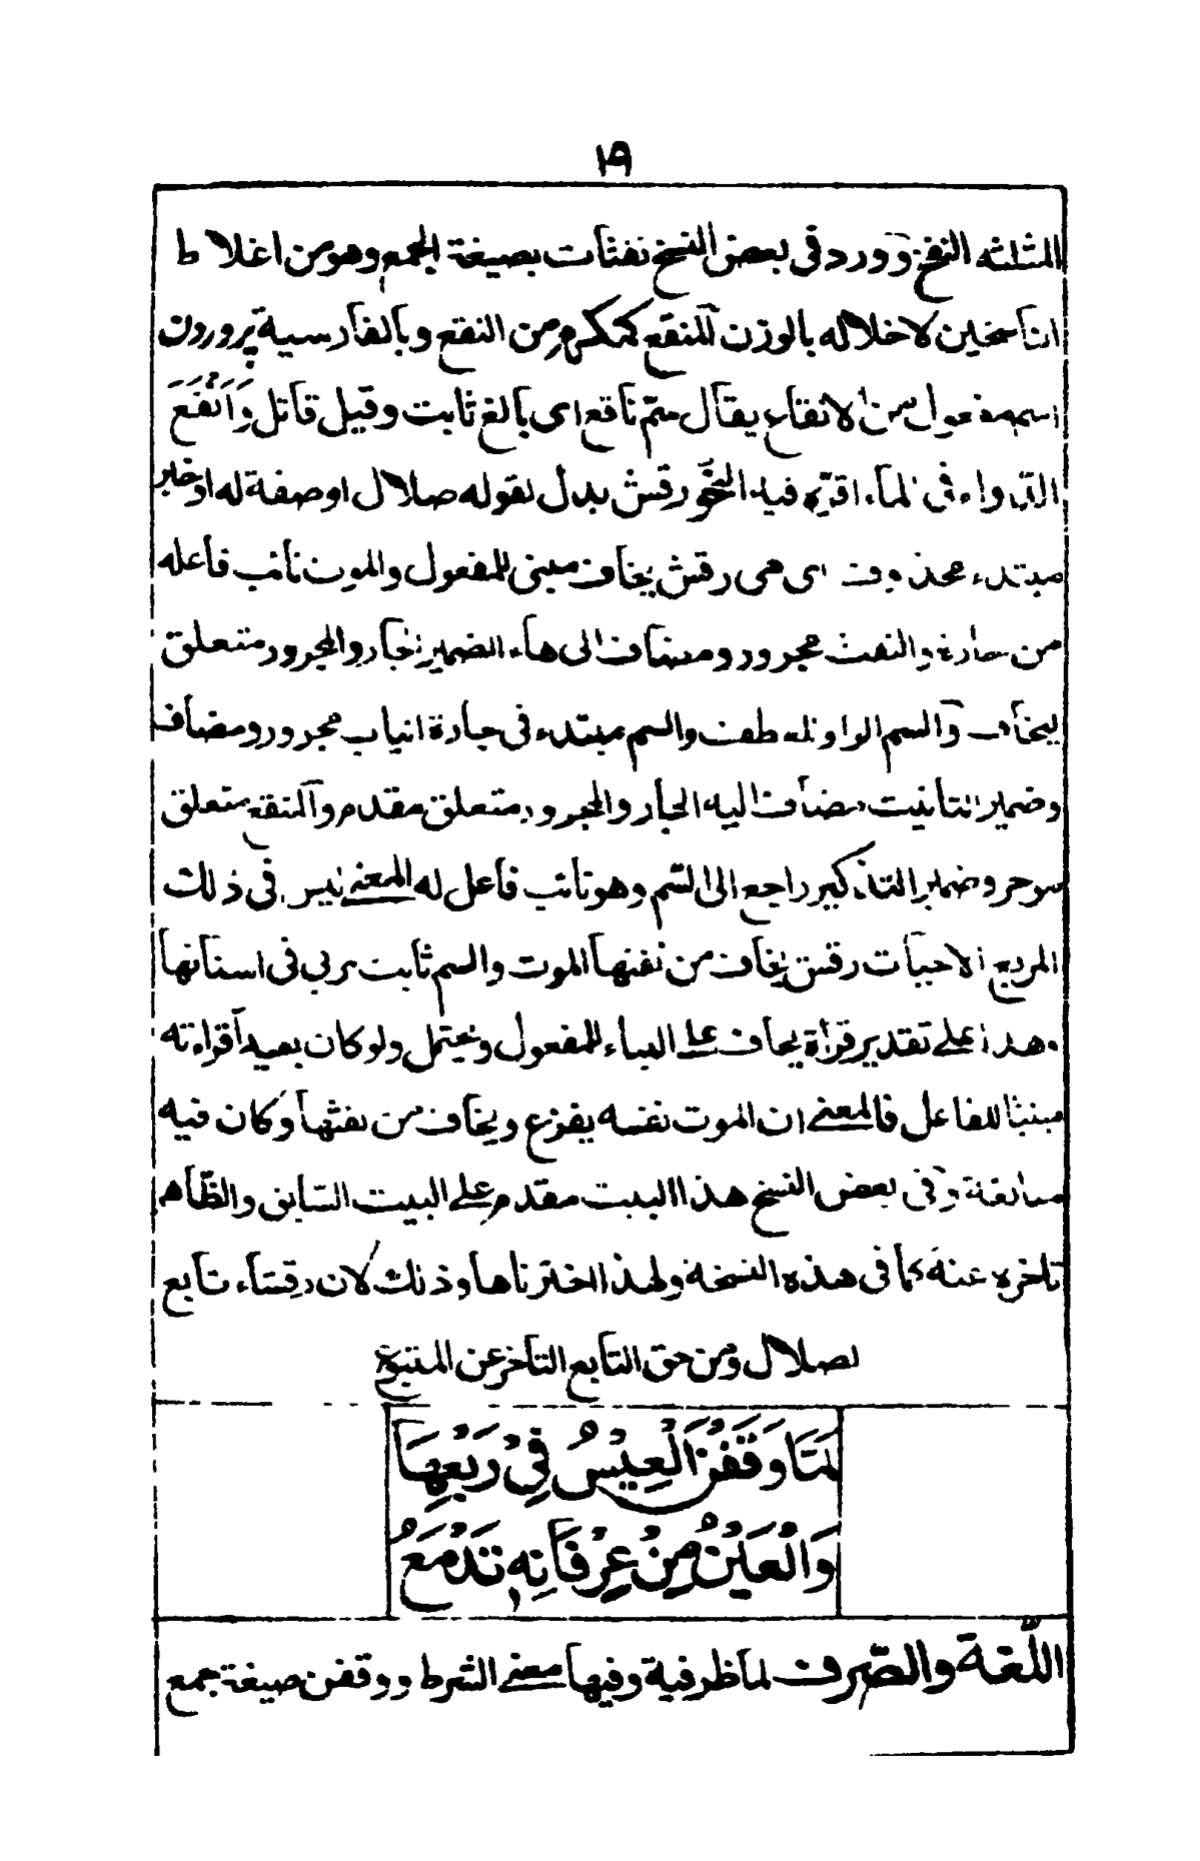 ١٩
المثلثه النفخ وورد فى بعض النسخ نفثات بصيغة الجمع وهو من اغلاط
الناسخين لاخلاله بالوزن المنقع كمكرم من النقع وبالفارسية پروردن
اسم مفعول من الانقاع يقال سمّ ناقع اى بالغ ثابت وقيل قاتل وَاَنْقَعَ
الدواء فى الماء اقرّه فيه النحو رقش بدل لقوله صلال او صفة له او خبر
مبتدء محذوف اى هى رقش يخاف مبنى للمفعول والموت نائب فاعله
من جارة والنفث مجرور ومضاف الى هاء الضمير الجار والمجرور متعلق
بيخاف والسم الواو عاطفة والسم مبتدء فى جارة انياب مجرور ومضاف
وضمير التانيث مضاف اليه الجار والمجرور متعلق مقدم والمنقع متعلق
موخر وضمير التذكير راجع الى السّم وهو نائب فاعل له المعنے ليس فى ذلك
المربع الا حيات رقش يخاف من نفثها الموت والسم ثابت مربى فى اسنانها
وهذا على تقدير قرأة يخاف على البناء للمفعول ويحتمل ولو كان بعيدا قراءته
مبنيا للفاعل فالمعنے ان الموت نفسه يفزع ويخاف من نفثها وكان فيه
مبالغة وفى بعض النسخ هذا البيت مقدم على البيت السابق والظاهر
تاخره عنه كما فى هذه النسخة ولهذا اخترناها وذلك لان رقشاء تابع
لصلال ومن حق التابع التاخر عن المتبوع
لَمَّا وَقَفْنَ الْعِيْسُ فِيْ رَبْعِهَا
وَالْعَيْنُ مِنْ عِرْفَانِهٖ تَدْمَعُ
اللّغة والصّرف لما ظرفية وفيها معنے الشرط ووقفن صيغة جمع